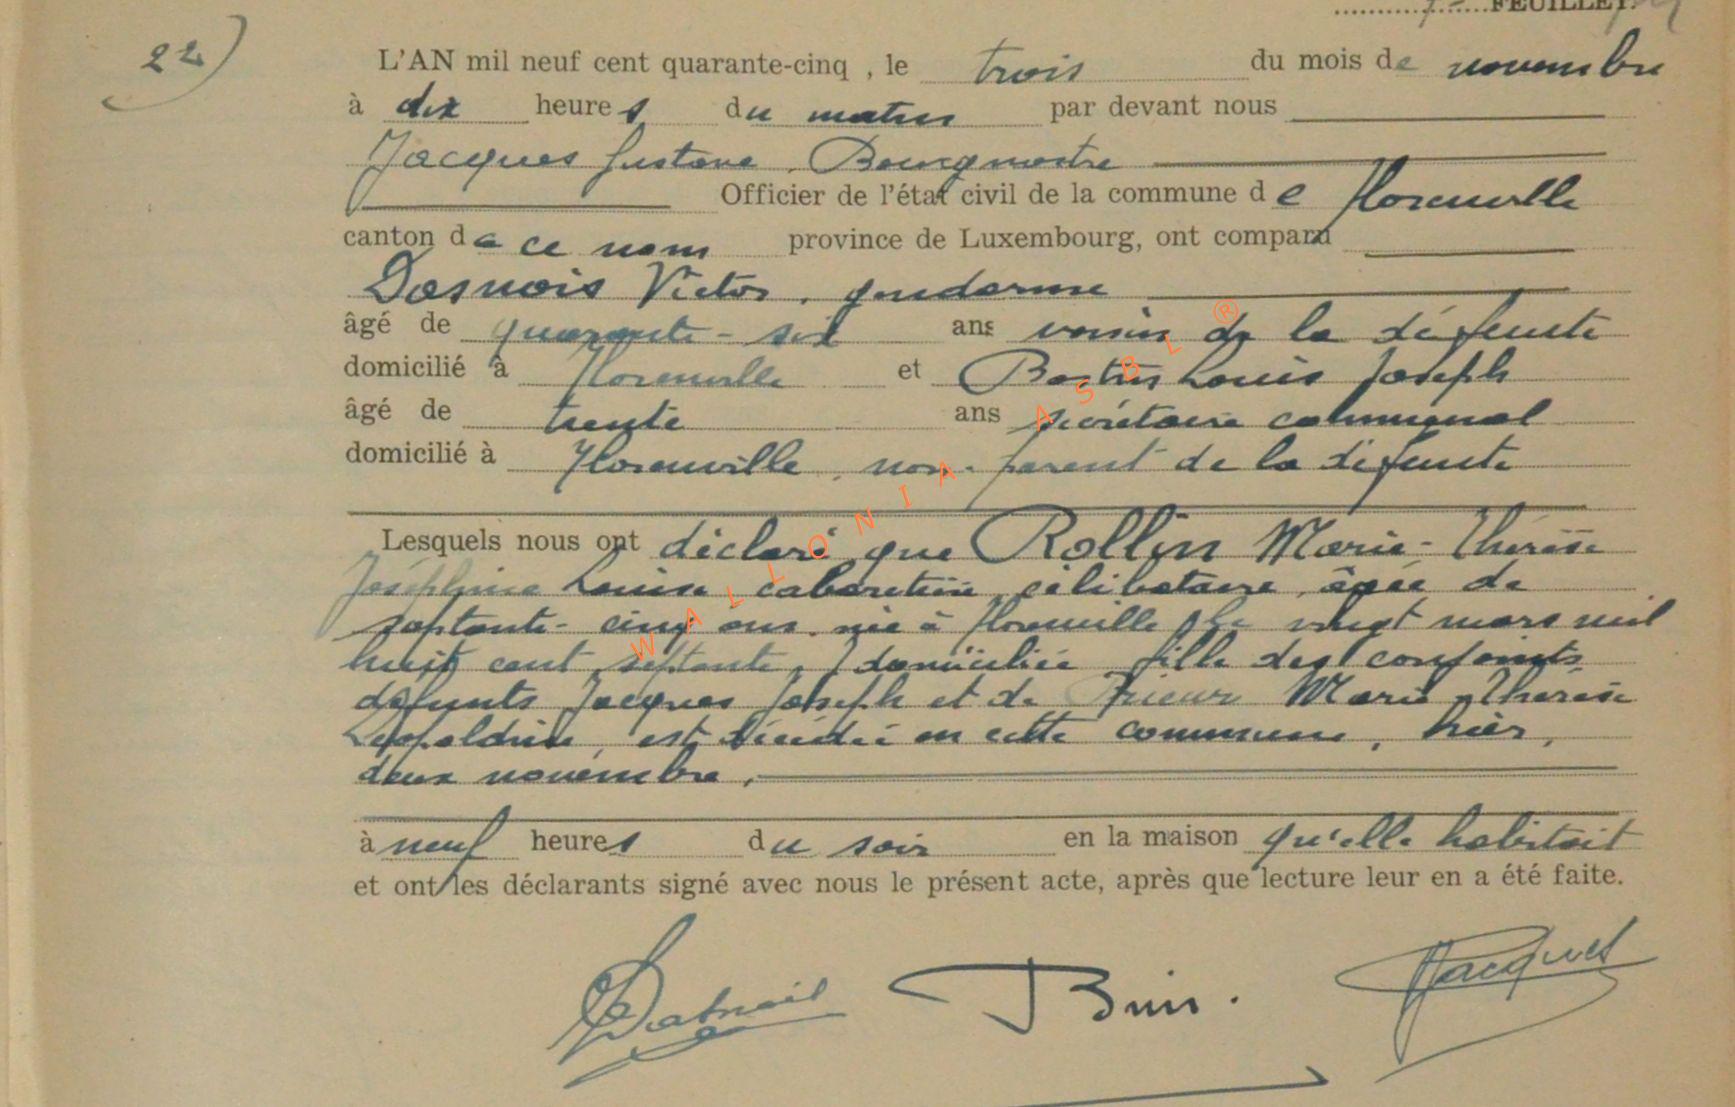 FEUILLET.
22)
L'AN mil neuf cent quarante-cinq , le trois du mois de novembre
à dix heures du matin par devant nous
Jacques Gustave, Bourgmestre
Officier de l'état civil de la commune de Florenville
canton de ce nom province de Luxembourg, ont comparu
Dasnois Victor, gendarme
âgé de quarante-six ans voisin de la défunte
domicilié à Florenville et Bastin Louis Joseph
âgé de trente ans secrétaire communal
domicilié à Florenville, non-parent de la défunte
Lesquels nous ont déclaré que Rollin Marie-Thérèse
Joséphine Louise cabaretière, célibataire, âgée de
septante-cinq ans, née à Florenville, le vingt mars mil
huit cent septante, y domiciliée fille des conjoints
défunts Jacques Joseph et de Prieur Marie Thérèse
Léopoldine, est décédée en cette commune, hier,
deux novembre,
à neuf heures du soir en la maison qu'elle habitait
et ont les déclarants signé avec nous le présent acte, après que lecture leur en a été faite.
Jacques
WALLONIA ASBL ®